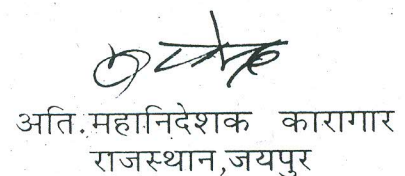 अति.महानिदेशक कारागार
राजस्थान,जयपुर